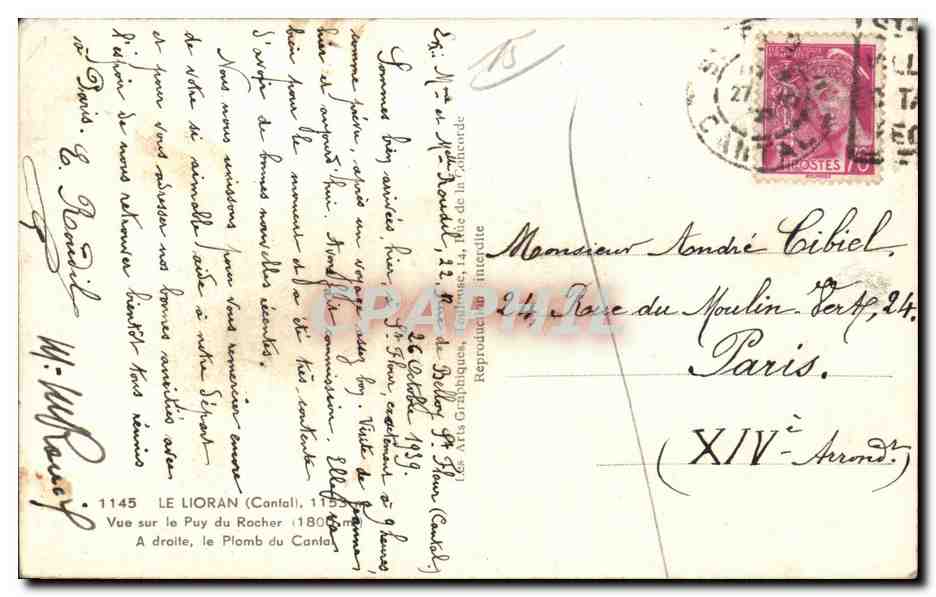 Ex: Mme et Melle Roudil, 22, Rue de Belloy St Flour (Cantal.)
26 Octobre 1939.
Sommes bien arrivées hier, à St. Flour, exactement à 9 heures,
comme prévu, après un voyage assez bon. Visite de Jeanne,
hier et aujourd'hui. Avons fait commission. Elle va
bien pour le moment et a été très contente
d'avoir de bonnes nouvelles récentes.
Nous nous unissons pour vous remercier encore
de votre si aimable aide à notre départ
et pour vous adresser nos bonnes amitiés avec
l'espoir de nous retrouver bientôt tous réunis
à Paris.
E. Roudil
M. Roudil
15
1145 LE LIORAN (Cantal), 1153
Vue sur le Puy du Rocher (1800 m)
A droite, le Plomb du Cantal
Les Arts Graphiques, Toulouse, 14, Rue de la Concorde
Reproduction interdite
CPAPHIL
POSTES
CANTAL
Monsieur André Cibiel
24, Rue du Moulin Vert, 24.
Paris.
(XIVè Arrondt.)